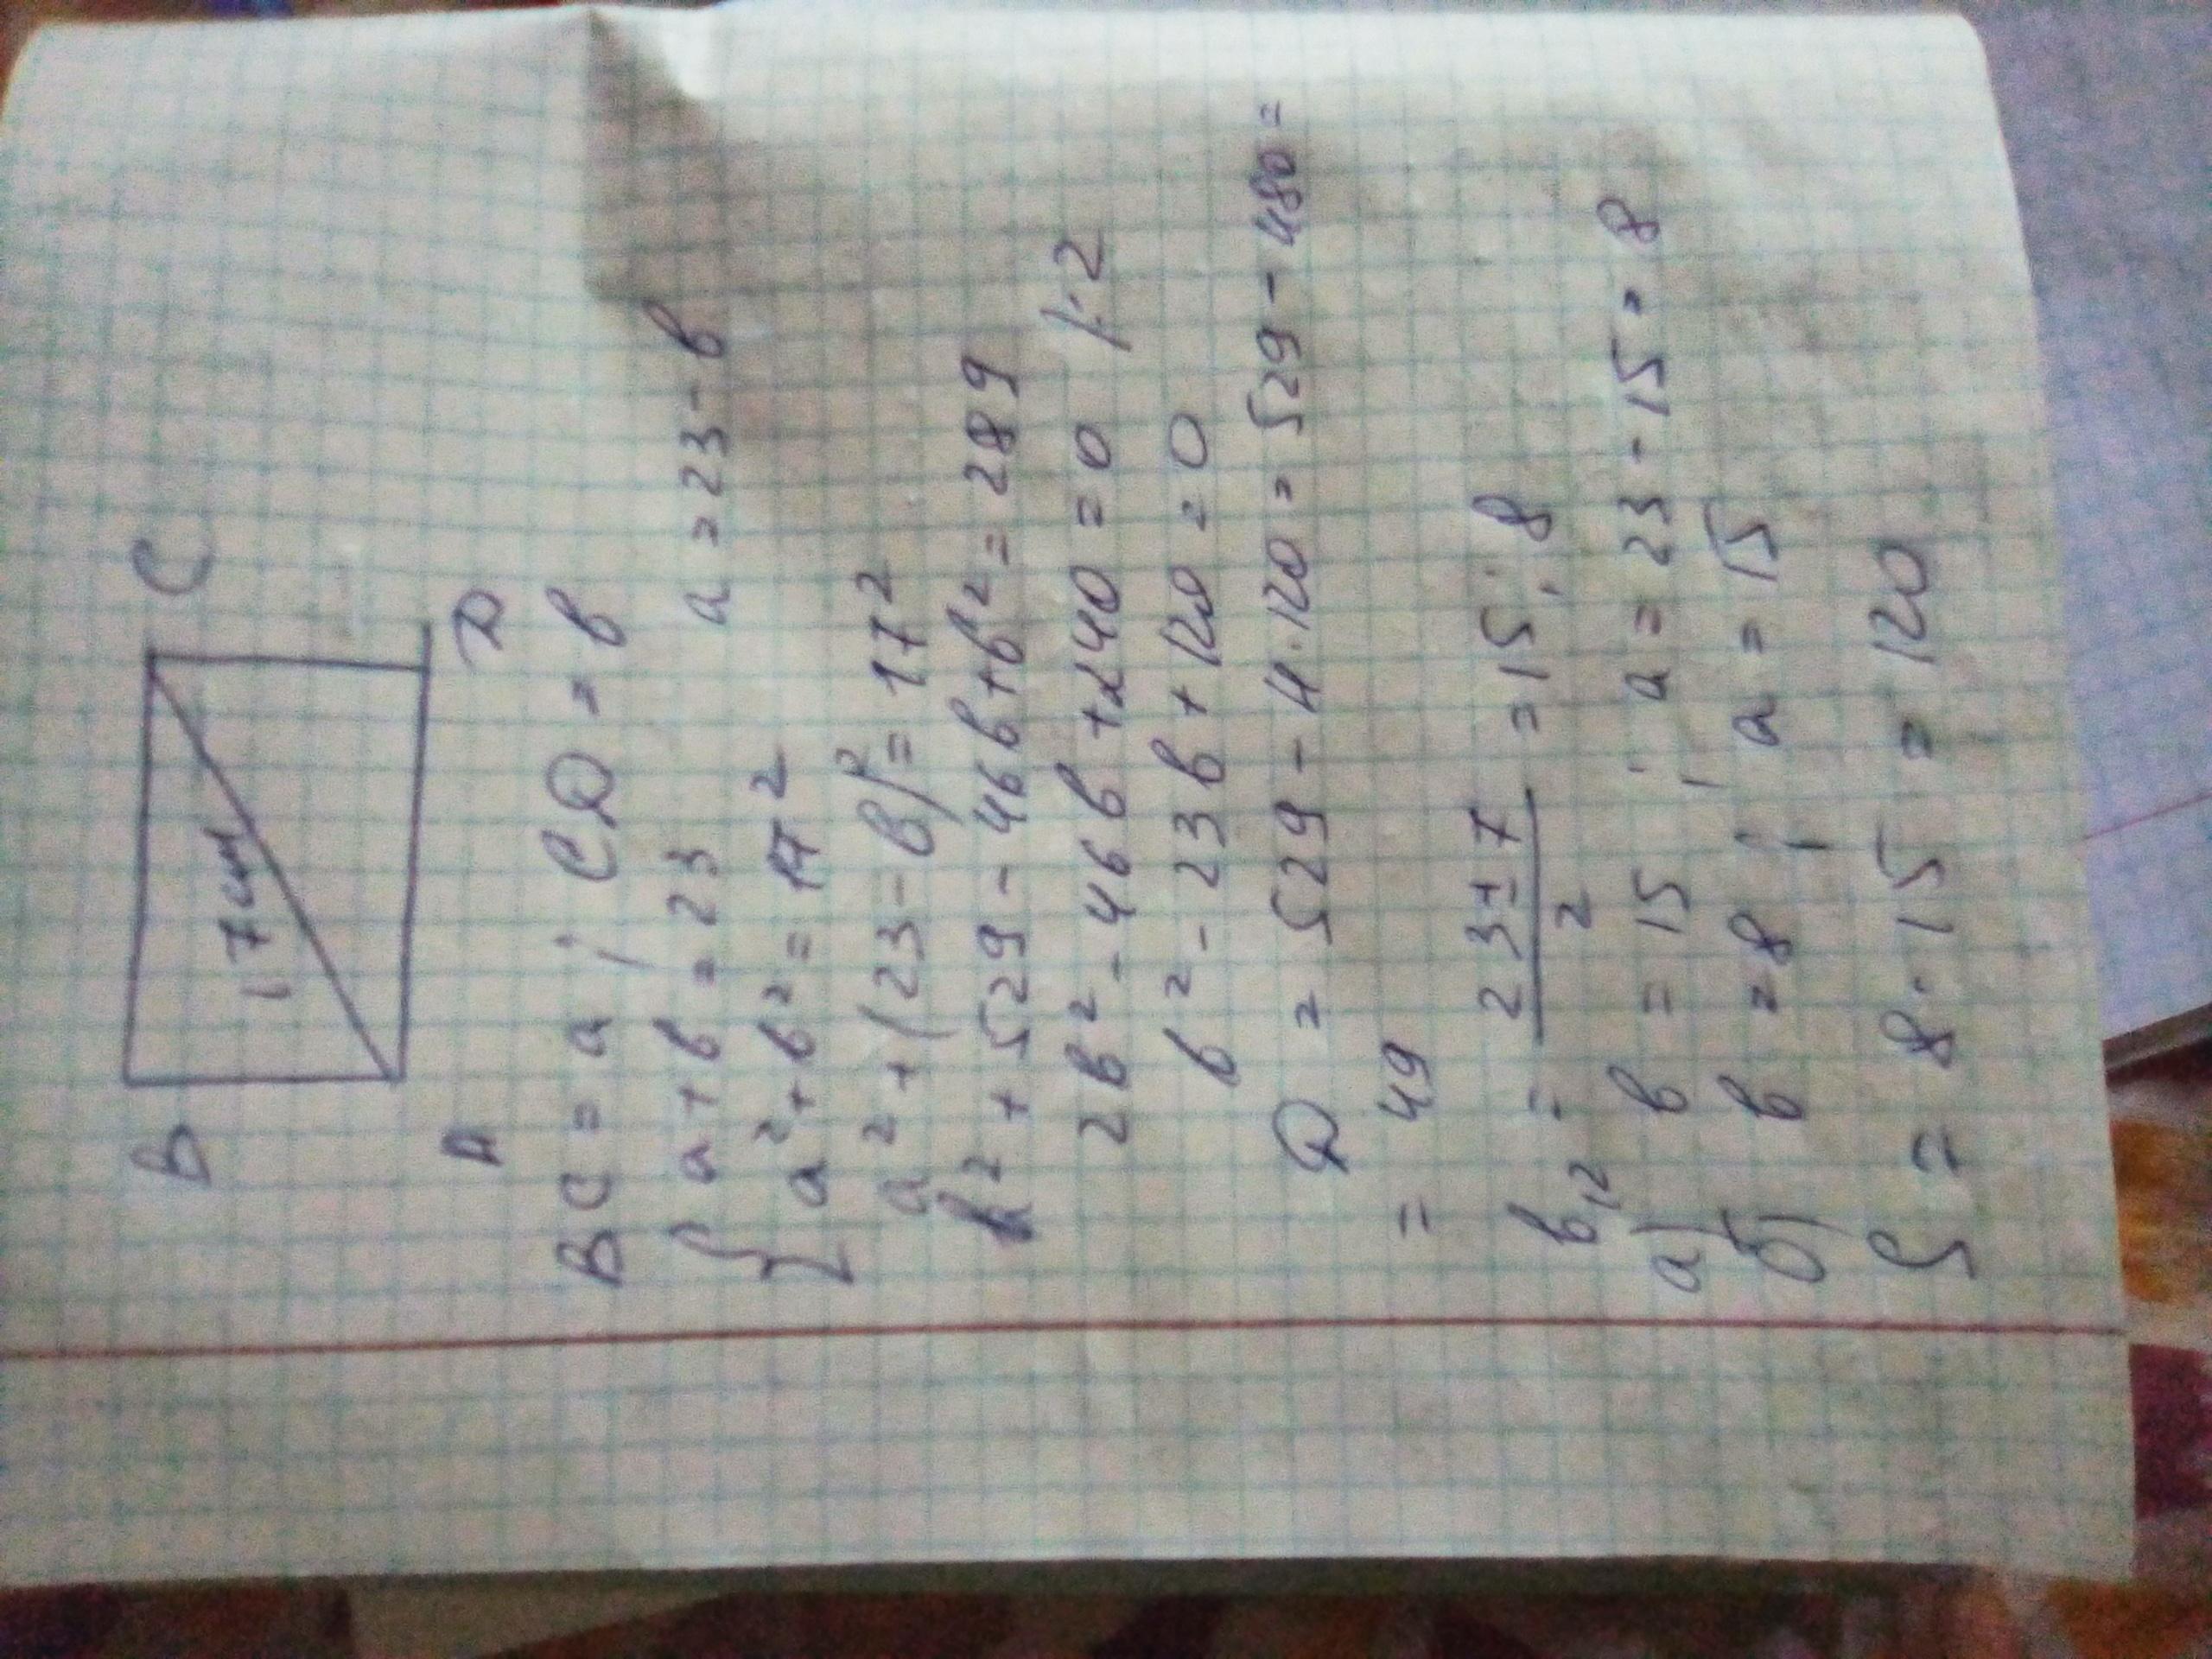 B C
17см
A D
BC = a ; CD = в
{ a + в = 23 a = 23 - в
a² + в² = 17²
a² + (23 - в)² = 17²
в² + 529 - 46в + в² = 289
2в² - 46в + 240 = 0 /:2
в² - 23в + 120 = 0
D = 529 - 4·120 = 529 - 480 =
= 49
в₁,₂ = (23 ± 7)/2 = 15; 8
а) в = 15 ; a = 23 - 15 = 8
б) в = 8 ; a = 15
S = 8 · 15 = 120